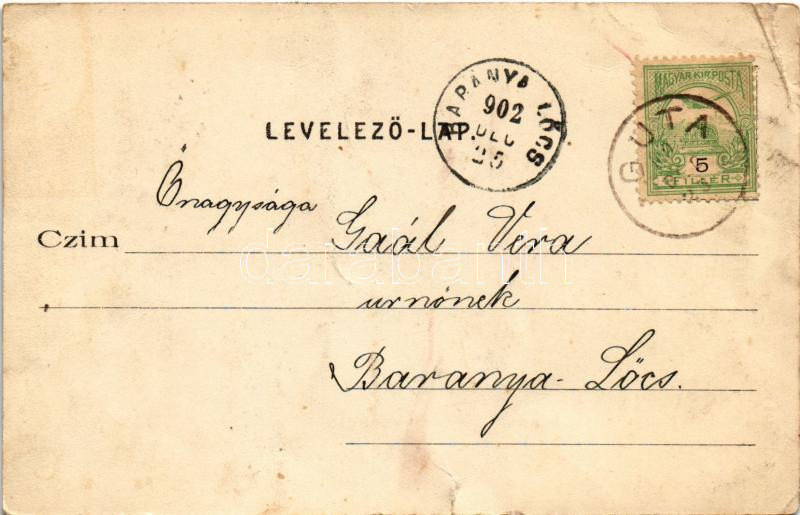 MAGYAR KIR. POSTA
5
FILLÉR
GUTA
BARANYA LŐCS
902
DEC
25
LEVELEZŐ-LAP.
Őnagysága
Czim Gaál Vera
urnőnek
Baranya-Lőcs.
darabanth